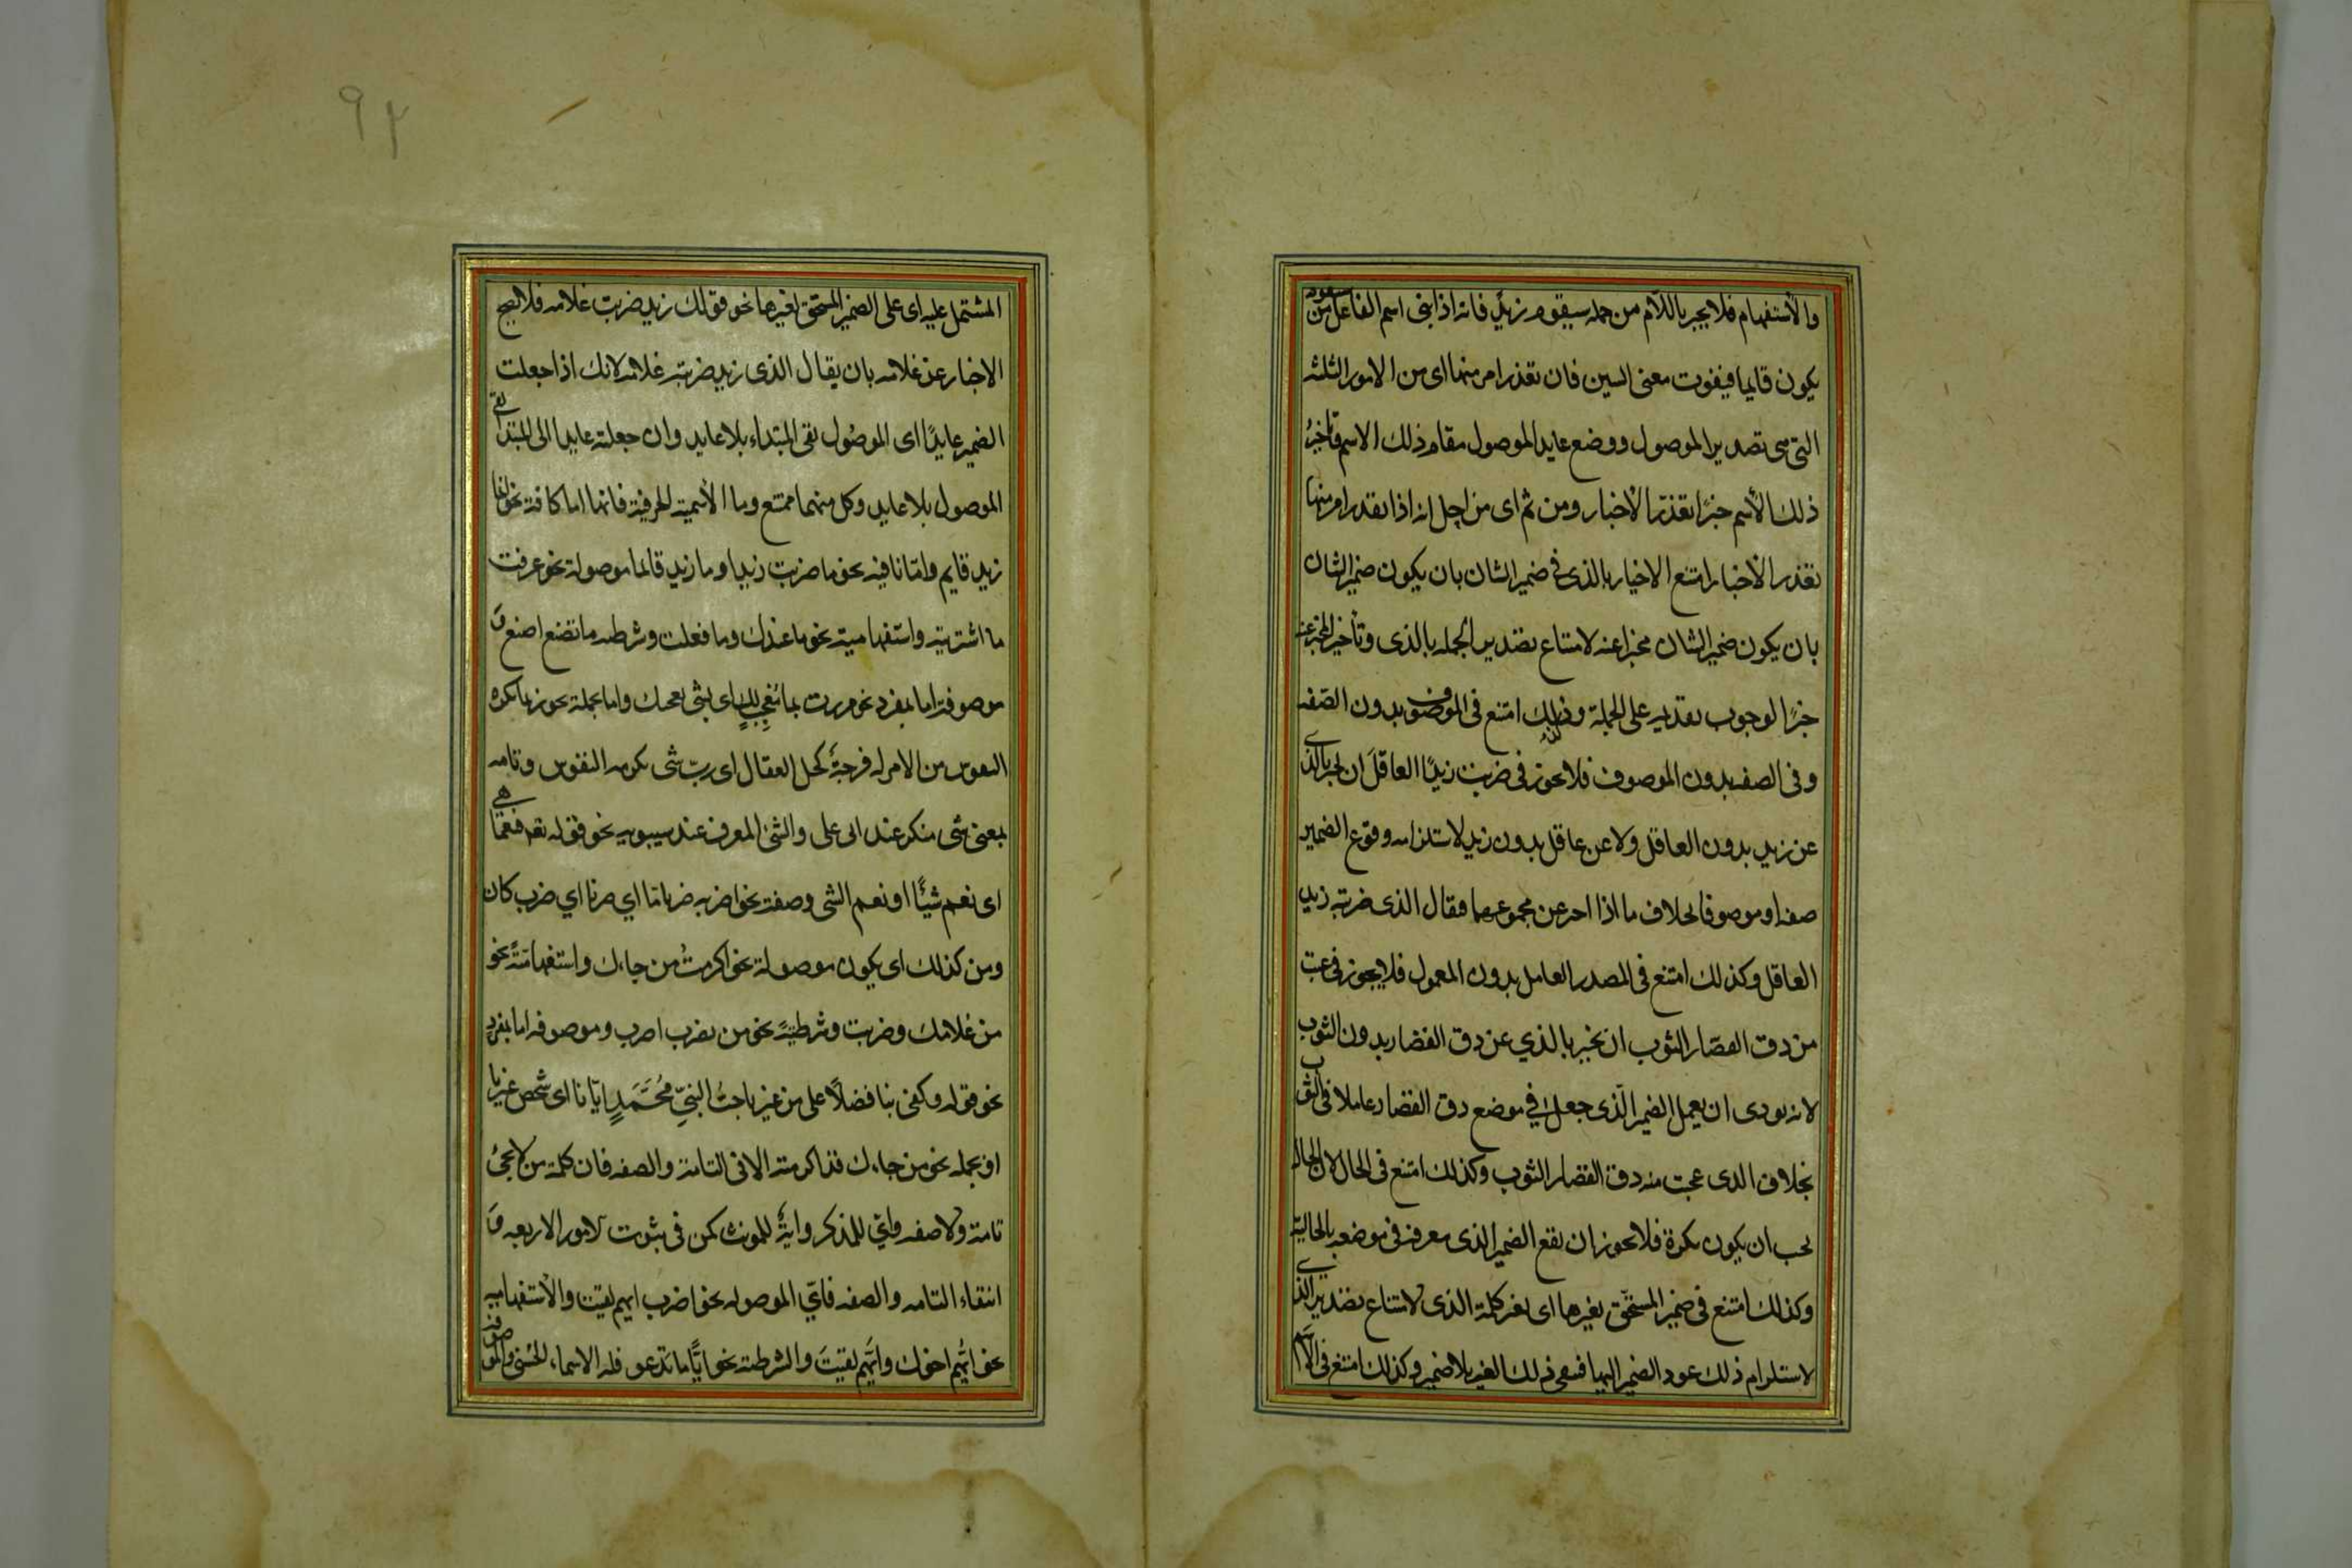 والأستفهام فلا يخبر باللام من جمله سيقوم زيدٌ فانه اذا بنى اسم الفاعل من سيقوم
يكون قايما فيفوت معنى السين فان تعذر امر منها اى من الامور الثلثه
التى هى تصدير الموصول ووضع عايد الموصول مقام ذلك الاسم وتأخيرُ
ذلك الأسم خبرًا تعذّر الأخبار ومن ثم اى من اجل انه اذا تعذر امر منها
تعذر الأخبار امتنع الاخبار بالذى فى ضمير الشان بان يكون ضمير الشان
بان يكون ضمير الشان مخبرا عنه لامتناع تصدير الجمله بالذى وتأخير المخبر عنه
خبرًا لوجوب تقديمه على الجملة وكذلك امتنع فى الموصوف بدون الصّفه
وفى الصفه بدون الموصوف فلا يجوز فى ضربت زيدًا العاقلَ ان يخبر بالذى
عن زيد بدون العاقل ولا عن عاقل بدون زيد لاستلزامه وقوع الضمير
صفه او موصوفا بخلاف ما اذا اخبر عن مجموعهما فقال الذى ضربته زيد
العاقل وكذلك امتنع فى المصدر العامل بدون المعمول فلا يجوز فى عجبت
من دق القصّار الثوب ان يخبر بالذي عن دق القصار بدون الثوب
لانه يودى ان يعمل الضمير الّذى جعل في موضع دق القصار عاملا فى الثوب
بخلاف الذى عجبت منه دق القصار الثوب وكذلك امتنع فى الحال لان الحال
يجب ان يكون نكرة فلا يجوز ان يقع الضمير الذى معرفه فى موضعه بالحالية
وكذلك امتنع فى ضمير المستحّق بغيرها اى لغير كلمة الذى لامتناع تصدير الذى
لاستلزام ذلك عود الضمير اليها فيبقى ذلك الغير بلا ضمير وكذلك امتنع فى الاسم
٩٢
المشتمل عليه اى على الضمير المستحق لغيرها نحو قولك زيد ضربت غلامه فلا يصح
الاخبار عن غلامه بان يقال الذى زيد ضربته غلامه لانك اذا جعلت
الضمير عايدًا اى الموصُول بقى المبتداء بلا عايد وان جعلته عايدا الى المبتدا بقى
الموصول بلا عايد وكل منهما ممتنع وما الأسمية الحرفية فانها اما كافة نحو انما
زيد قايم وامّا نافيه نحو ما ضربت زيدا وما زيد قائما موصولة نحو عرفت
ما اشتريته واستفهامية نحو ما عندك وما فعلت وشرطيه ما تصنع اصنع وَ
موصوفة اما بمفرد نحو مررت بما مُعْجِبٍ لك اى بشى يعجبك واما بجملة نحو ربما تكره
النفوس من الامر له فرجةٌ كحل العقال اى ربّ شى تكرهه النفوس وتامه
بمعنى شى منكر عند ابى على والشئ المعرف عند سيبويه نحو قوله تعه فنعمّا هى
اى نعم شئًا او نعم الشى وصفة نحو اضربه ضربا مّا اي ضربا اي ضرب كان
ومن كذلك اى يكون موصولة نحو اكرمتُ من جاءك واستفهاميّةً نحو
من غلامك وضربت وشرطيةً نحو من يضرب اضرب وموصوفه اما بمفردٍ
نحو قوله وكفى بنا فضلًا على من غيرنا حبُّ النبيِّ مُحَمَّدٍ ايّانا اى شخص غيرنا
او بجمله نحو من جاءك قد اكرمته الا فى التامة والصفه فان كلمة من لا تجئُ
تامة ولا صفه وايّ للمذكر وايةٌ للمونث كمن فى ثبوت الامور الاربعه وَ
انتقاء التامه والصفه فايّ الموصوله نحو اضرب ايهم لقيت والأستفهاميه
نحو ايُّهم اخوك وايَّهم لقيتَ والشرطية نحو ايًّا ما تدعو فله الاسماء الحُسْنى والموصوفه